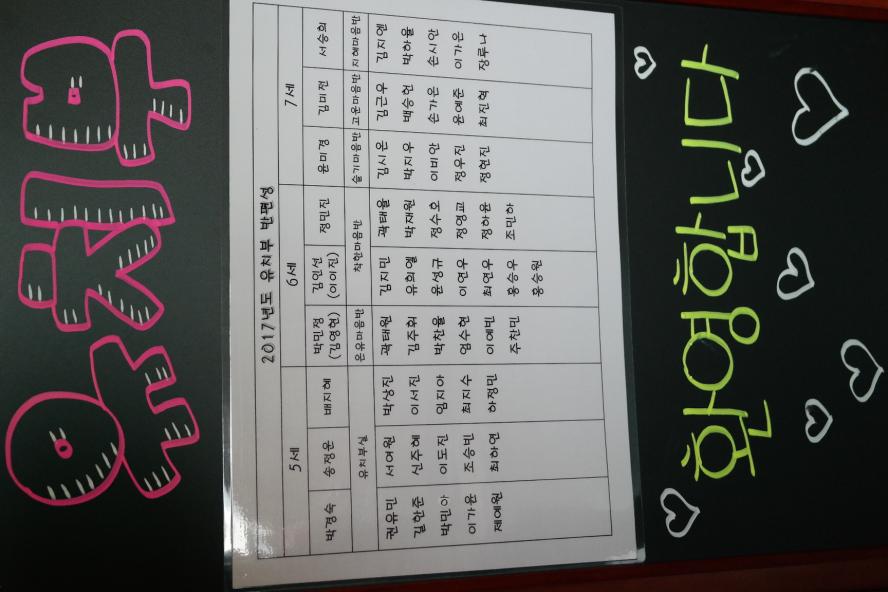 유치부
2017년도 유치부 반편성
5세 6세 7세
박경숙 송정운 배지혜 박민정 김인선 정민진 윤미경 김미전 서승희
(김영현) (이이진)
유치부실 온유마음반 착한마음반 슬기마음반 고운마음반 지혜마음반
권유민 서여원 박상진 곽태원 김지민 곽태용 김시온 김근우 김지엔
길한준 신주혜 이서진 김주휘 유희엘 박재원 박지우 백승헌 박하율
박민아 이도진 임지아 박찬율 윤성규 정수호 이비안 손가온 손시안
이가온 조승빈 최지수 임수현 이연우 정영교 정우진 윤예준 이가온
제예원 최하연 하정민 이예빈 최연우 정하윤 정현진 최진혁 장루나
주찬민 홍승우 조민하
홍승원
환영합니다